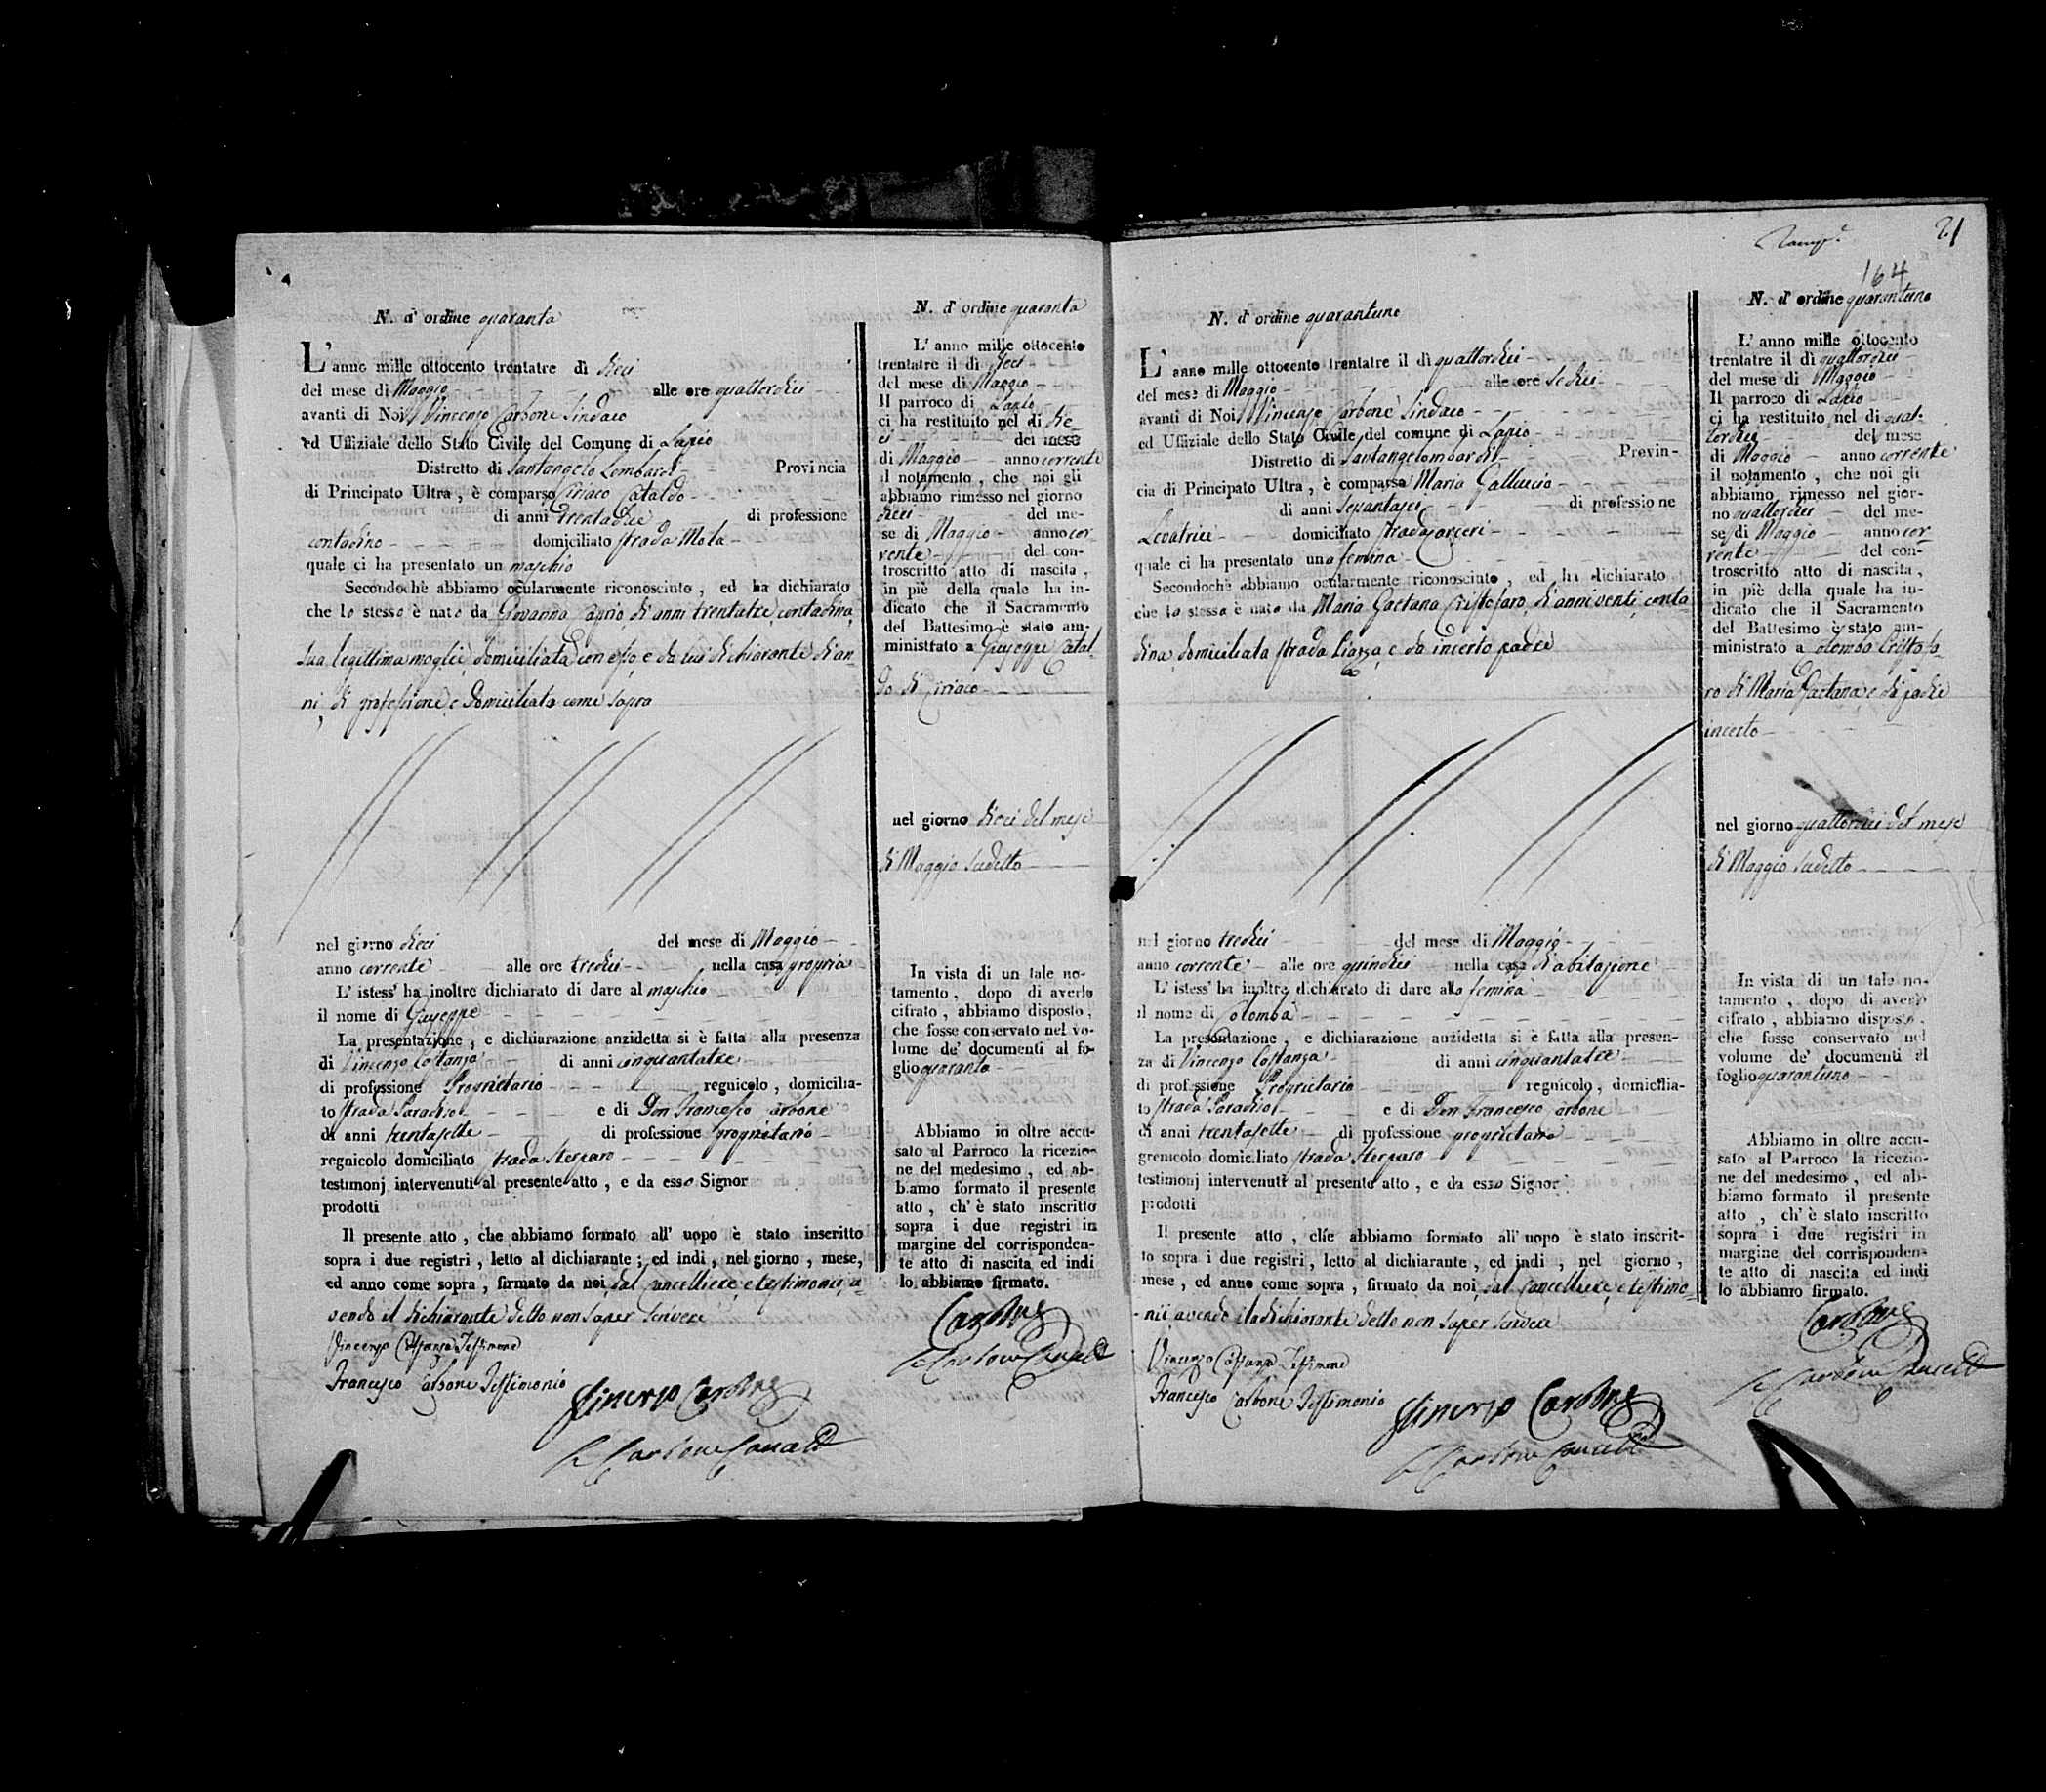 N. d'ordine quaranta
L'anno mille ottocento trentatre dì dieci
del mese di Maggio alle ore quattordici
avanti di Noi Vincenzo Carbone Sindaco
ed Uffiziale dello Stato Civile del Comune di Lapio
Distretto di Santangelo Lombardi Provincia
di Principato Ultra, è comparso Ciriaco Cataldo
di anni trentadue di professione
contadino domiciliato strada Mota
quale ci ha presentato un maschio
Secondochè abbiamo ocularmente riconosciuto, ed ha dichiarato
che lo stesso è nato da Giovanna di anni trentatre, contadina,
sua legittima moglie, domiciliata con esso e da lui dichiarante di an-
ni, di professione, e domiciliata come sopra
nel giorno dieci del mese di Maggio
anno corrente alle ore tredici nella casa propria
L'istess' ha inoltre dichiarato di dare al maschio
il nome di Giuseppe
La presentazione, e dichiarazione anzidetta si è fatta alla presenza
di Vincenzo Costanza di anni cinquantatre
di professione Proprietario regnicolo, domicilia-
to strada Paradiso e di Don Francesco Carbone
di anni trentasette di professione proprietario
regnicolo domiciliato strada Sterparo
testimonj intervenuti al presente atto, e da esso Signor
prodotti
Il presente atto, che abbiamo formato all' uopo è stato inscritto
sopra i due registri, letto al dichiarante; ed indi, nel giorno, mese,
ed anno come sopra, firmato da noi, dal Cancelliere, e testimonii, a-
vendo il dichiarante detto non saper scrivere
Vincenzo Costanza Testimone
Francesco Carbone Testimonio
Vincenzo Carbone
Carbone Cancell
N. d'ordine quaranta
L'anno mille ottocento
trentatre il dì dieci
del mese di Maggio
Il parroco di Lapio
ci ha restituito nel dì die-
ci del mese
di Maggio anno corrente
il notamento, che noi gli
abbiamo rimesso nel giorno
dieci del me-
se di Maggio anno cor-
rente del con-
troscritto atto di nascita,
in piè della quale ha in-
dicato che il Sacramento
del Battesimo è stato am-
ministrato a Giuseppe Catal-
do di Ciriaco
nel giorno dieci del mese
di Maggio sudetto
In vista di un tale no-
tamento, dopo di averlo
cifrato, abbiamo disposto,
che fosse conservato nel vo-
lume de' documenti al fo-
glio quaranta
Abbiamo in oltre accu-
sato al Parroco la ricezio-
ne del medesimo, ed ab-
biamo formato il presente
atto, ch' è stato inscritto
sopra i due registri in
margine del corrisponden-
te atto di nascita ed indi
lo abbiamo firmato.
Carbone
Carbone Cancell
21
164
N. d'ordine quarantuno
L'anno mille ottocento trentatre il dì quattordici
del mese di Maggio alle ore sedici
avanti di Noi Vincenzo Carbone Sindaco
ed Uffiziale dello Stato Civile del comune di Lapio
Distretto di Santangelombardi Provin-
cia di Principato Ultra, è comparsa Maria Galluccio
di anni sessantasei di professione
Levatrice domiciliato strada Carceri
quale ci ha presentato una femina
Secondochè abbiamo ocularmente riconosciuto, ed ha dichiarato
che la stessa è nata da Maria Gaetana Cristofaro, di anni venti, conta
dina, domiciliata strada Piazza, e da incerto padre
nel giorno tredici del mese di Maggio
anno corrente alle ore quindici nella casa di abitazione
L'istess' ha inoltre dichiarato di dare alla femina
il nome di Colomba
La presentazione, e dichiarazione anzidetta si è fatta alla presen-
za di Vincenzo Costanza di anni cinquantatre
di professione Proprietario regnicolo, domicilia-
to strada Paradiso e di Don Francesco Carbone
di anni trentasette di professione proprietario
grenicolo domiciliato strada Sterparo
testimonj intervenuti al presente atto, e da esso Signor
prodotti
Il presente atto, che abbiamo formato all' uopo è stato inscrit-
to sopra i due registri, letto al dichiarante, ed indi, nel giorno,
mese, ed anno come sopra, firmato da noi, dal Cancelliere, e testimo-
nii avendo la dichiarante detto non saper scrivere
Vincenzo Costanza Testimone
Francesco Carbone Testimonio
Vincenzo Carbone
Carbone Cancell
N. d'ordine quarantuno
L'anno mille ottocento
trentatre il dì quattordici
del mese di Maggio
Il parroco di Lapio
ci ha restituito nel dì quat-
tordici del mese
di Maggio anno corrente
il notamento, che noi gli
abbiamo rimesso nel gior-
no quattordici del me-
se di Maggio anno cor-
rente del con-
troscritto atto di nascita,
in piè della quale ha in-
dicato che il Sacramento
del Battesimo è stato am-
ministrato a Colomba Cristofa-
ro di Maria Gaetana, e di padre
incerto
nel giorno quattordici del mese
di Maggio sudetto
In vista di un tale no-
tamento, dopo di averlo
cifrato, abbiamo disposto,
che fosse conservato nel
volume de' documenti al
foglio quarantuno
Abbiamo in oltre accu-
sato al Parroco la ricezio-
ne del medesimo, ed ab-
biamo formato il presente
atto, ch' è stato inscritto
sopra i due registri in
margine del corrisponden-
te atto di nascita ed indi
lo abbiamo firmato.
Carbone
Carbone Cancell